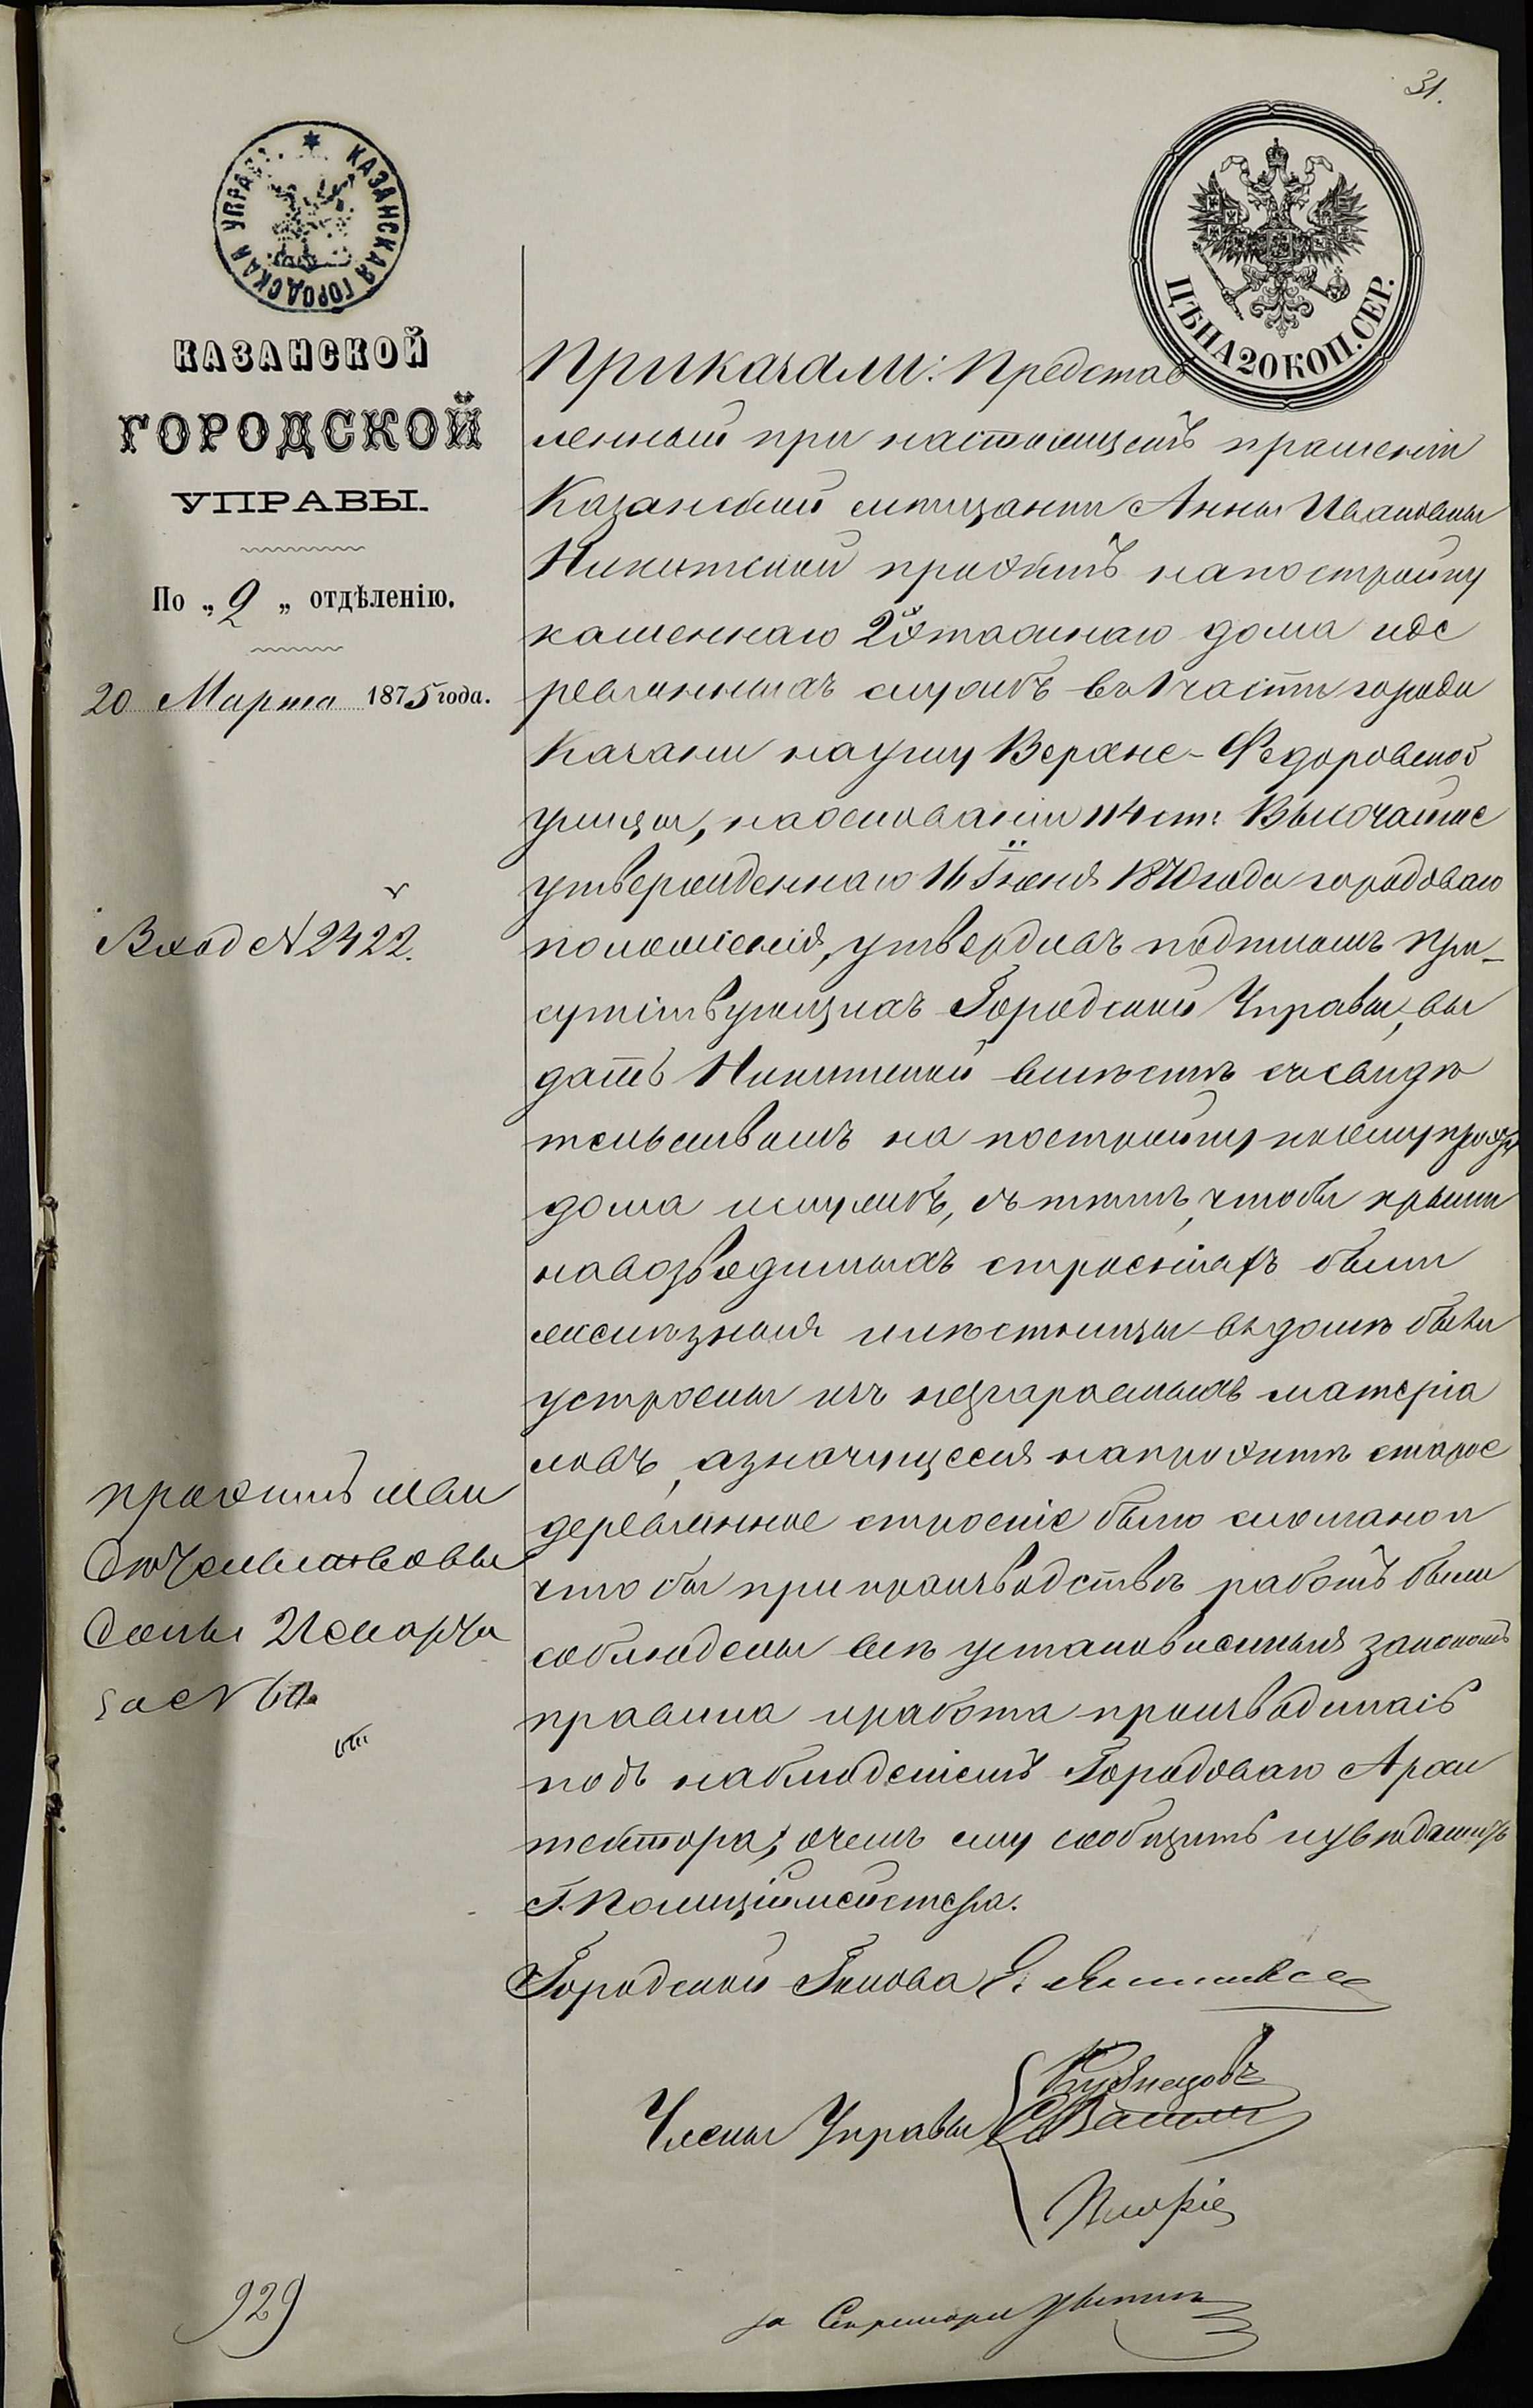 31.
КАЗАНСКАЯ ГОРОДСКАЯ УПРАВА
ЦѢНА 20 КОП. СЕР.
КАЗАНСКОЙ
ГОРОДСКОЙ
УПРАВЫ.
По „2„ отдѣленію.
20 Марта 1875 года.
Вход №2422.
проэктъ
21 Марта
за №
929
Приказали: Представ
ленный при настоящемъ прошеніи
Казанской мѣщанки Анны Ивановны
Никитской проэктъ на постройку
каменнаго 2хэтажнаго дома и де
ревянныхъ службъ въ 1 части города
Казани на углу Верхне-Федоровской
улицы, на основаніи 114 ст: Высочайше
утвержденнаго 16 Іюня 1870 года городоваго
положенія, утвердивъ подписомъ при-
сутствующихъ Городской Управы, вы
дать Никитской вмѣстѣ съ свидѣ
тельствомъ на постройку по сему проэкту
дома и службъ, съ тѣмъ, чтобы крыши
на возводимыхъ строеніяхъ были
желѣзныя и лѣстницы въ домѣ были
устроены изъ несгараемыхъ матеріа
ловъ, а значущееся на проэктѣ старое
деревянное строеніе было сломано и
чтобы при производствѣ работъ были
соблюдены всѣ установленныя закономъ
правила и работа производилась
подъ наблюденіемъ Городоваго Архи
тектора, о чемъ ему сообщить и увѣдомить
Г. Полиціймейстера.
Городской Голова Э. Янишевскій
Члены Управы
Кузнецовъ
за Секретаря